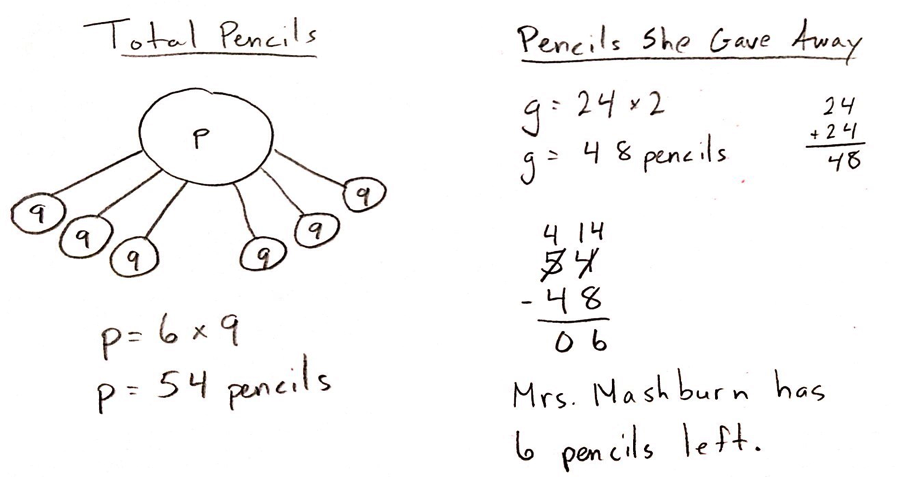 Total Pencils
p
9
9
9
9
9
9
p = 6 × 9
p = 54 pencils
Pencils She Gave Away
g = 24 × 2
g = 48 pencils
24
+ 24
48
4 14
54
- 48
06
Mrs. Mashburn has
6 pencils left.